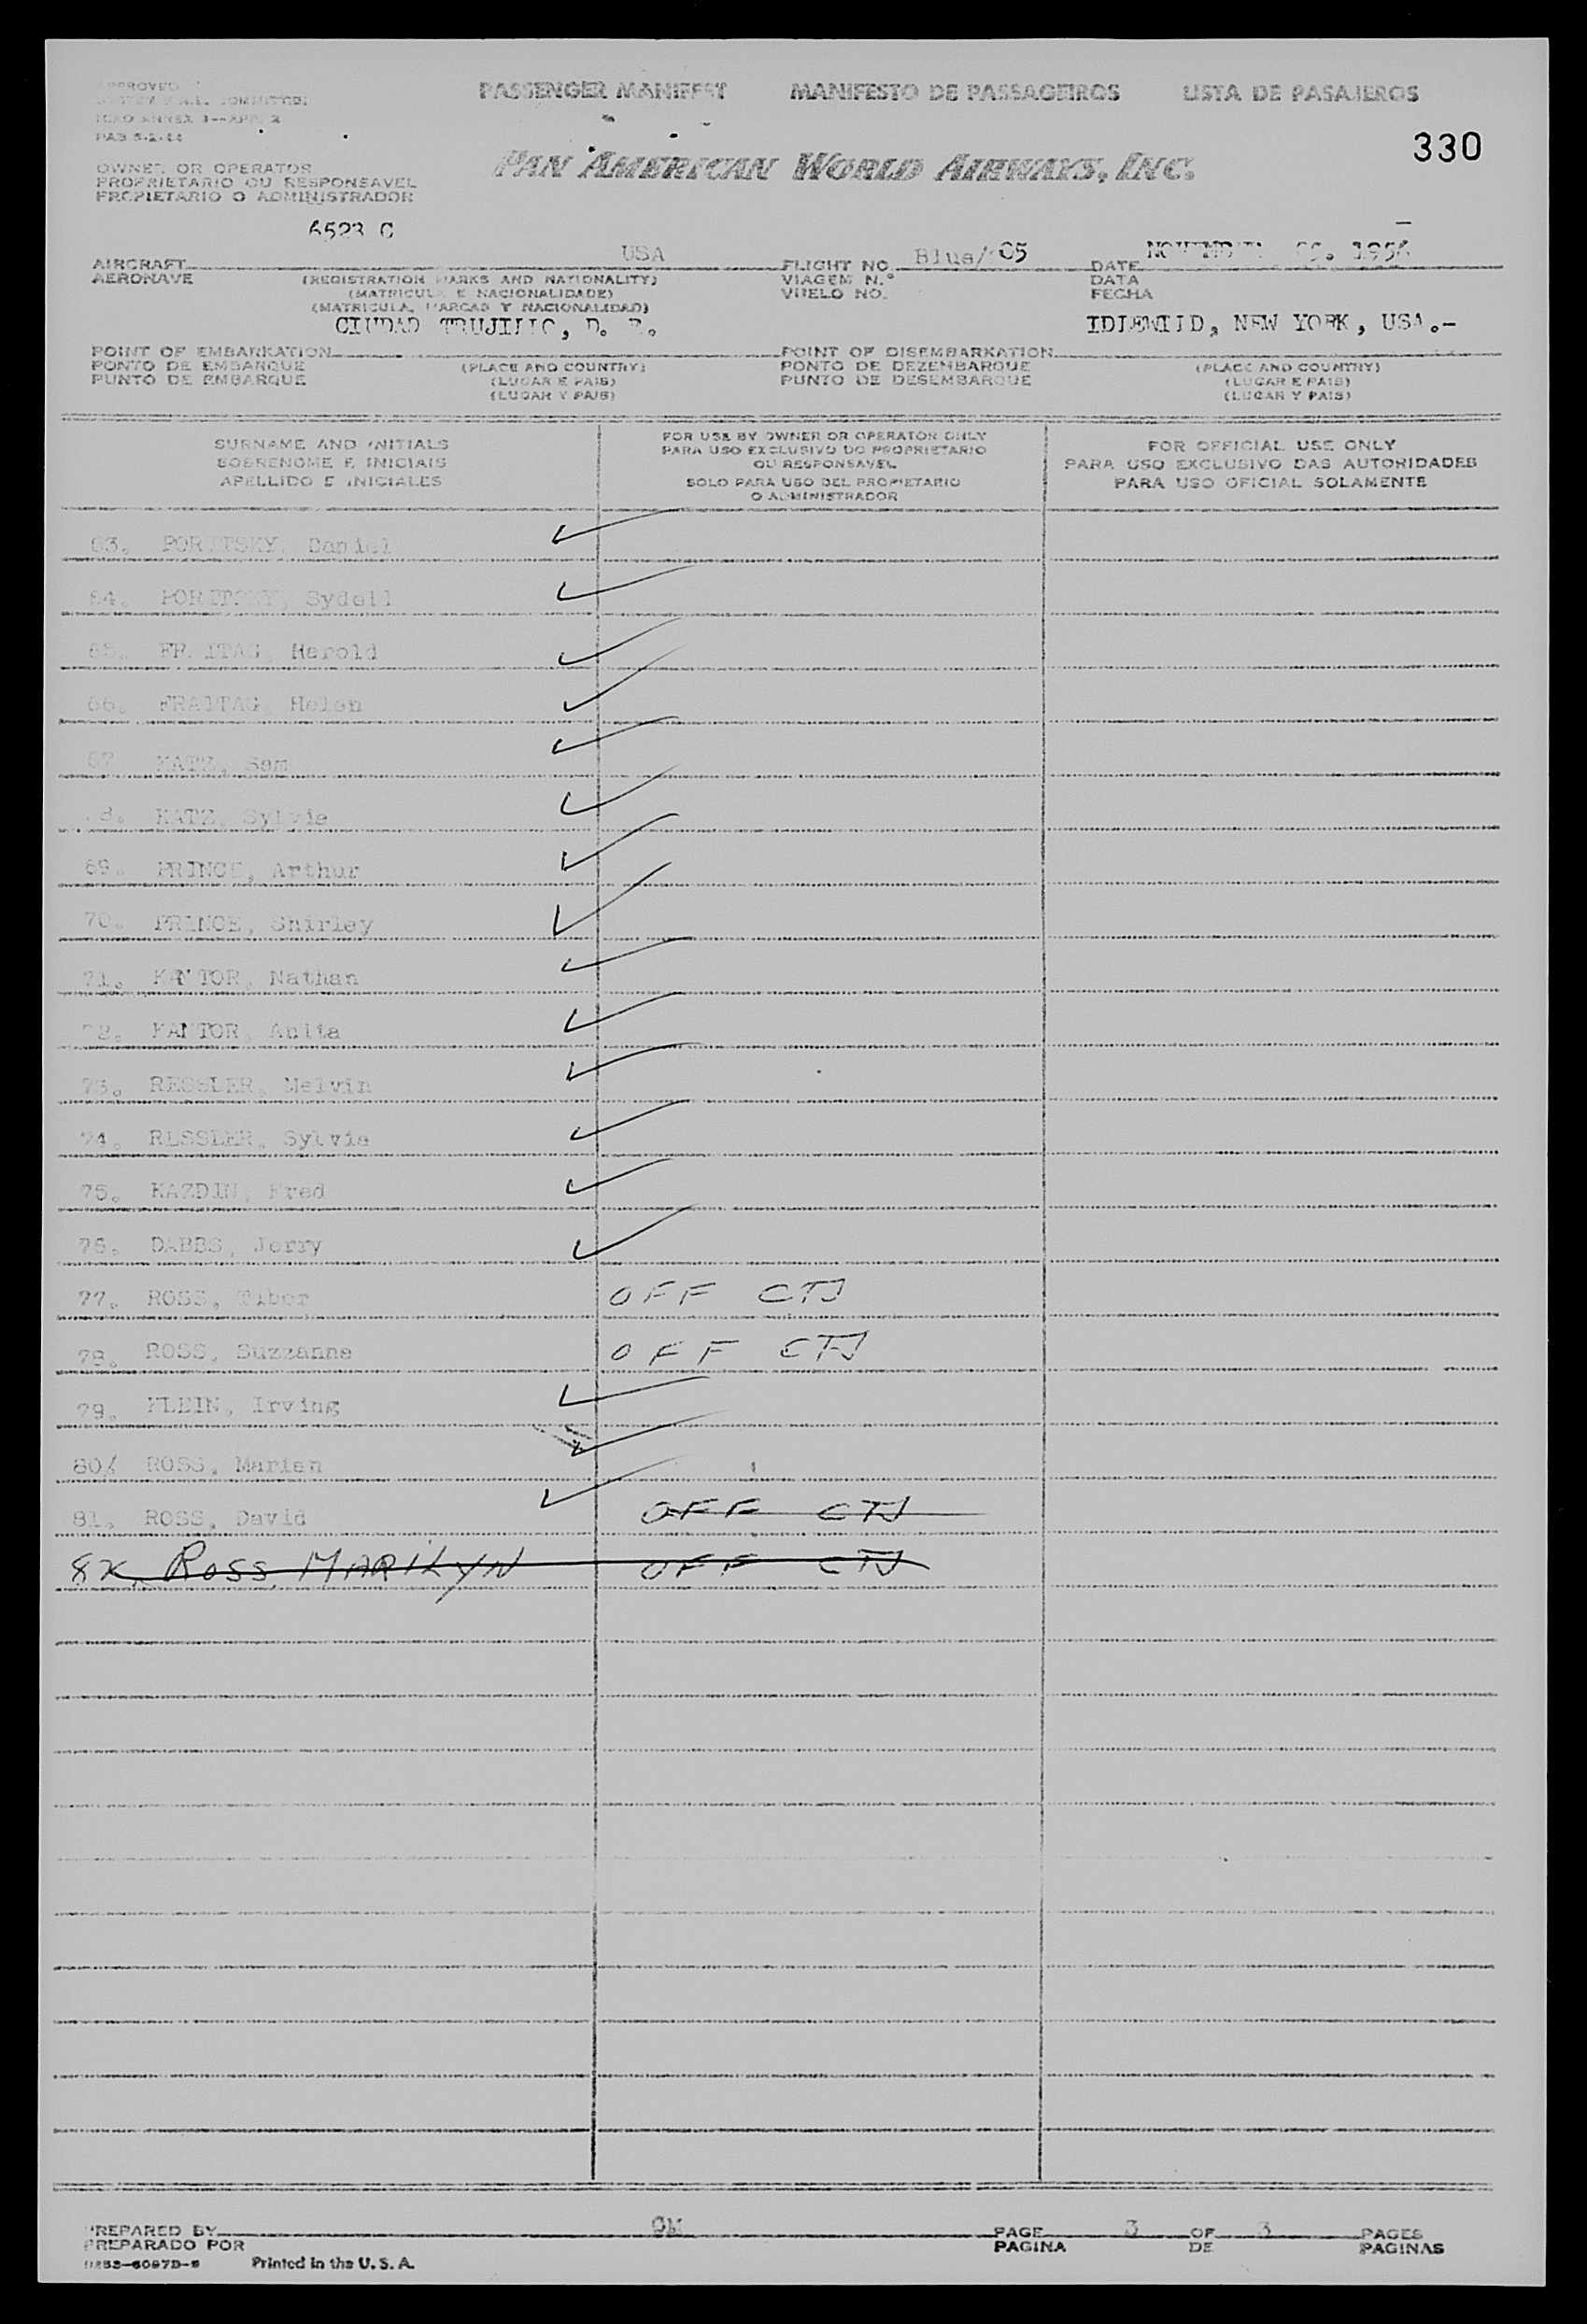 PASSENGER MANIFEST MANIFESTO DE PASSAGEIROS LISTA DE PASAJEROS
APPROVED
ICAO ANNEX
PAB 5-2-44
330
PAN AMERICAN WORLD AIRWAYS, INC.
OWNER OR OPERATOR
PROPRIETARIO OU RESPONSAVEL
PROPIETARIO O ADMINISTRADOR
6523 C
USA
Blue/ 05
1956
AIRCRAFT FLIGHT NO. DATE
AERONAVE (REGISTRATION MARKS AND NATIONALITY) VIAGEM N.° DATA
(MATRICULA E NACIONALIDADE) VUELO NO. FECHA
(MATRICULA, MARCAS Y NACIONALIDAD)
CIUDAD TRUJILLO, D. R. IDLEWILD, NEW YORK, USA.-
POINT OF EMBARKATION POINT OF DISEMBARKATION
PONTO DE EMBARQUE (PLACE AND COUNTRY) PONTO DE DEZEMBARQUE (PLACE AND COUNTRY)
PUNTO DE EMBARQUE (LUGAR E PAIS) PUNTO DE DESEMBARQUE (LUGAR E PAIS)
(LUGAR Y PAIS) (LUGAR Y PAIS)
SURNAME AND INITIALS
SOBRENOME E INICIAIS
APELLIDO E INICIALES
FOR USE BY OWNER OR OPERATOR ONLY
PARA USO EXCLUSIVO DO PROPRIETARIO
OU RESPONSAVEL
SOLO PARA USO DEL PROPIETARIO
O ADMINISTRADOR
FOR OFFICIAL USE ONLY
PARA USO EXCLUSIVO DAS AUTORIDADES
PARA USO OFICIAL SOLAMENTE
63. PORITSKY, Daniel
64. PORITSKY, Sydell
65. FRAITAG, Harold
66. FRAITAG, Helen
67. KATZ, Sam
68. KATZ, Sylvia
69. PRINCE, Arthur
70. PRINCE, Shirley
71. KANTOR, Nathan
72. KANTOR, Anita
73. RESSLER, Melvin
74. RESSLER, Sylvia
75. KAZDIN, Fred
76. DABBS, Jerry
77. ROSS, Tibor OFF CTJ
78. ROSS, Suzzanne OFF CTJ
79. KLEIN, Irving
80/ ROSS, Marian
81. ROSS, David OFF CTJ
ROSS MARILYN OFF CTJ
PREPARED BY PAGE 3 OF 3 PAGES
PREPARADO POR PAGINA DE PAGINAS
Printed in the U. S. A.